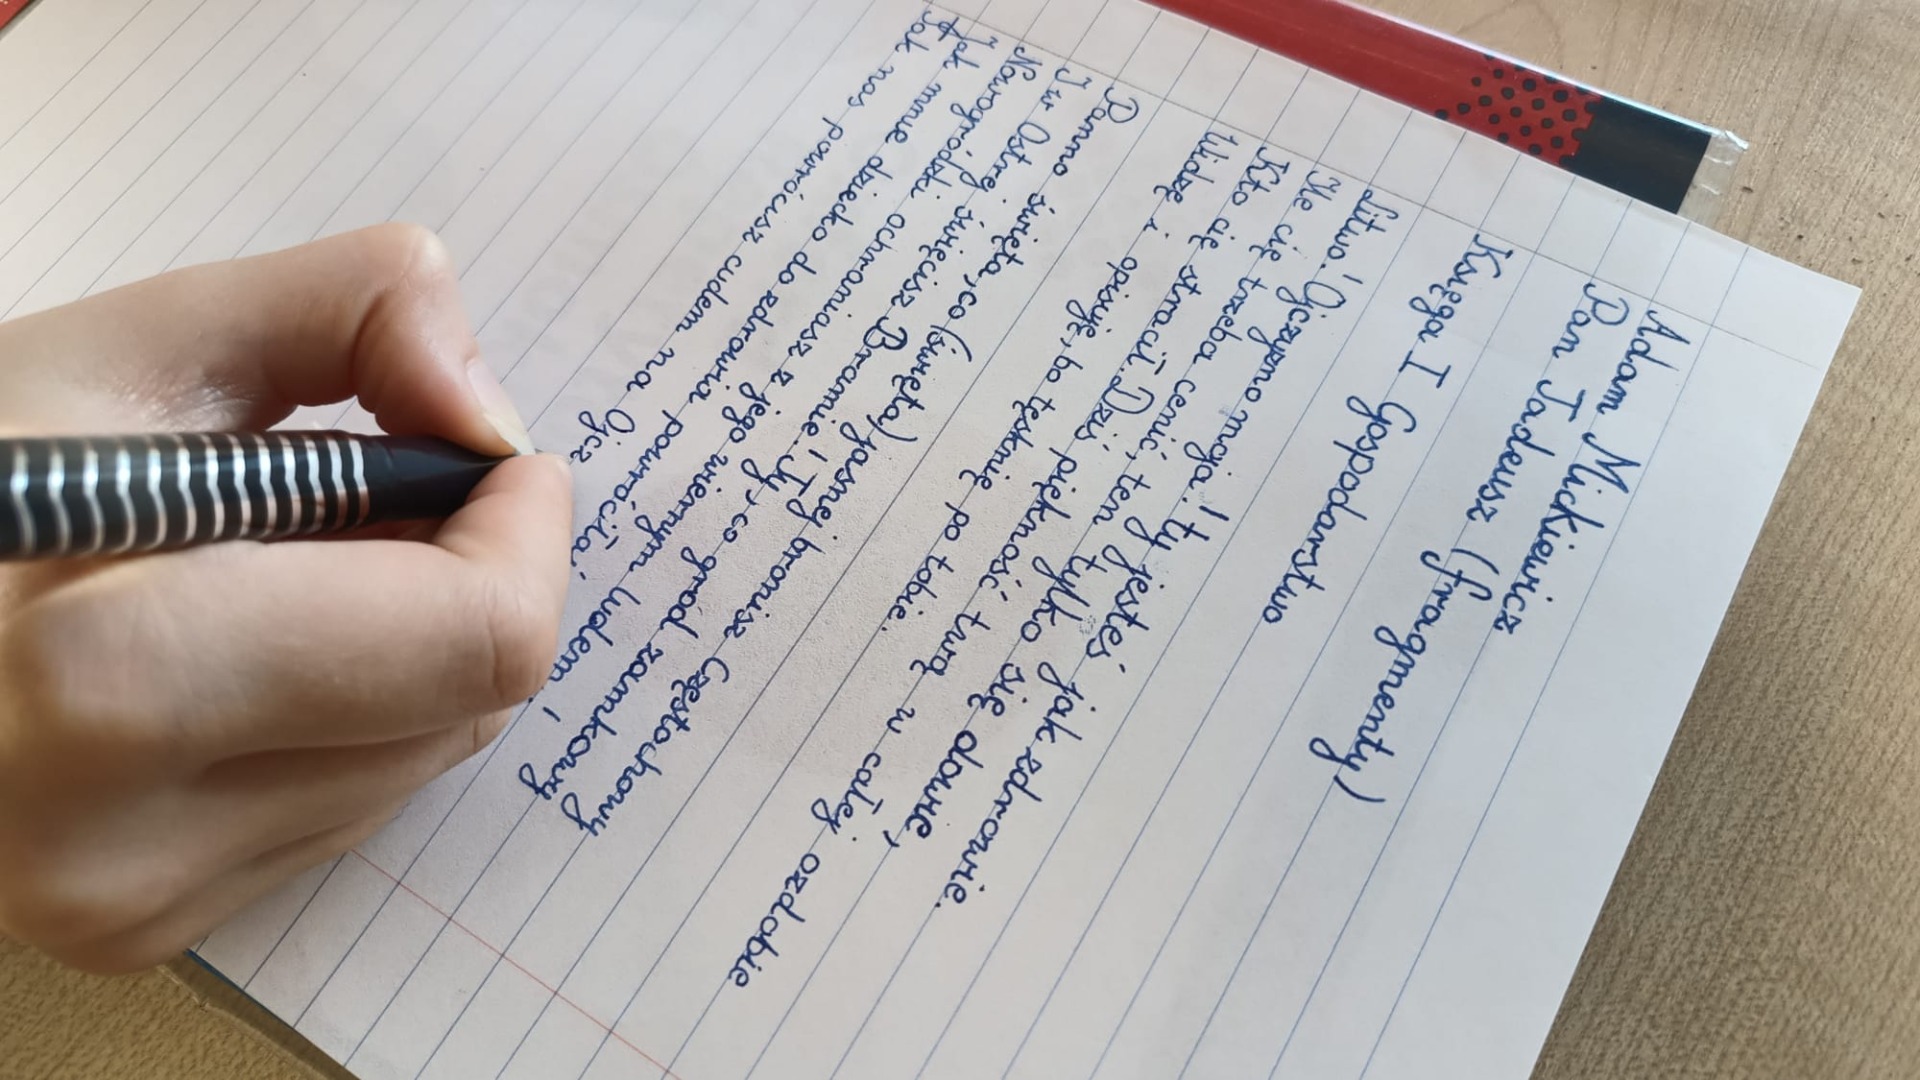 Adam Mickiewicz
Pan Tadeusz (fragmenty)
Księga I Gospodarstwo
Litwo! Ojczyzno moja! ty jesteś jak zdrowie.
Ile cię trzeba cenić, ten tylko się dowie,
Kto cię stracił. Dziś piękność twą w całej ozdobie
Widzę i opisuję, bo tęsknię po tobie.
Panno święta, co (święta) jasnej bronisz Częstochowy
I w Ostrej świecisz Bramie! Ty, co gród zamkowy
Nowogródzki ochraniasz z jego wiernym ludem!
Jak mnie dziecko do zdrowia powróciłaś
Tak nas powrócisz cudem na Ojcz